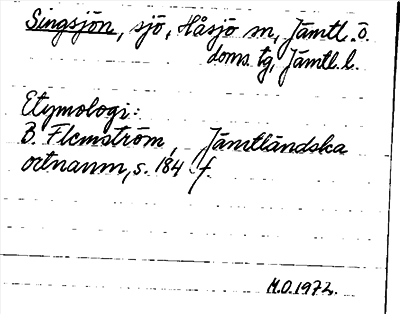 Singsjön, sjö, Håsjö sn, Jämtl. ö.
doms. tg, Jämtl. l.
Etymologi:
B. Flemström, Jämtländska
ortnamn, s. 184 f.
M.O. 1972.